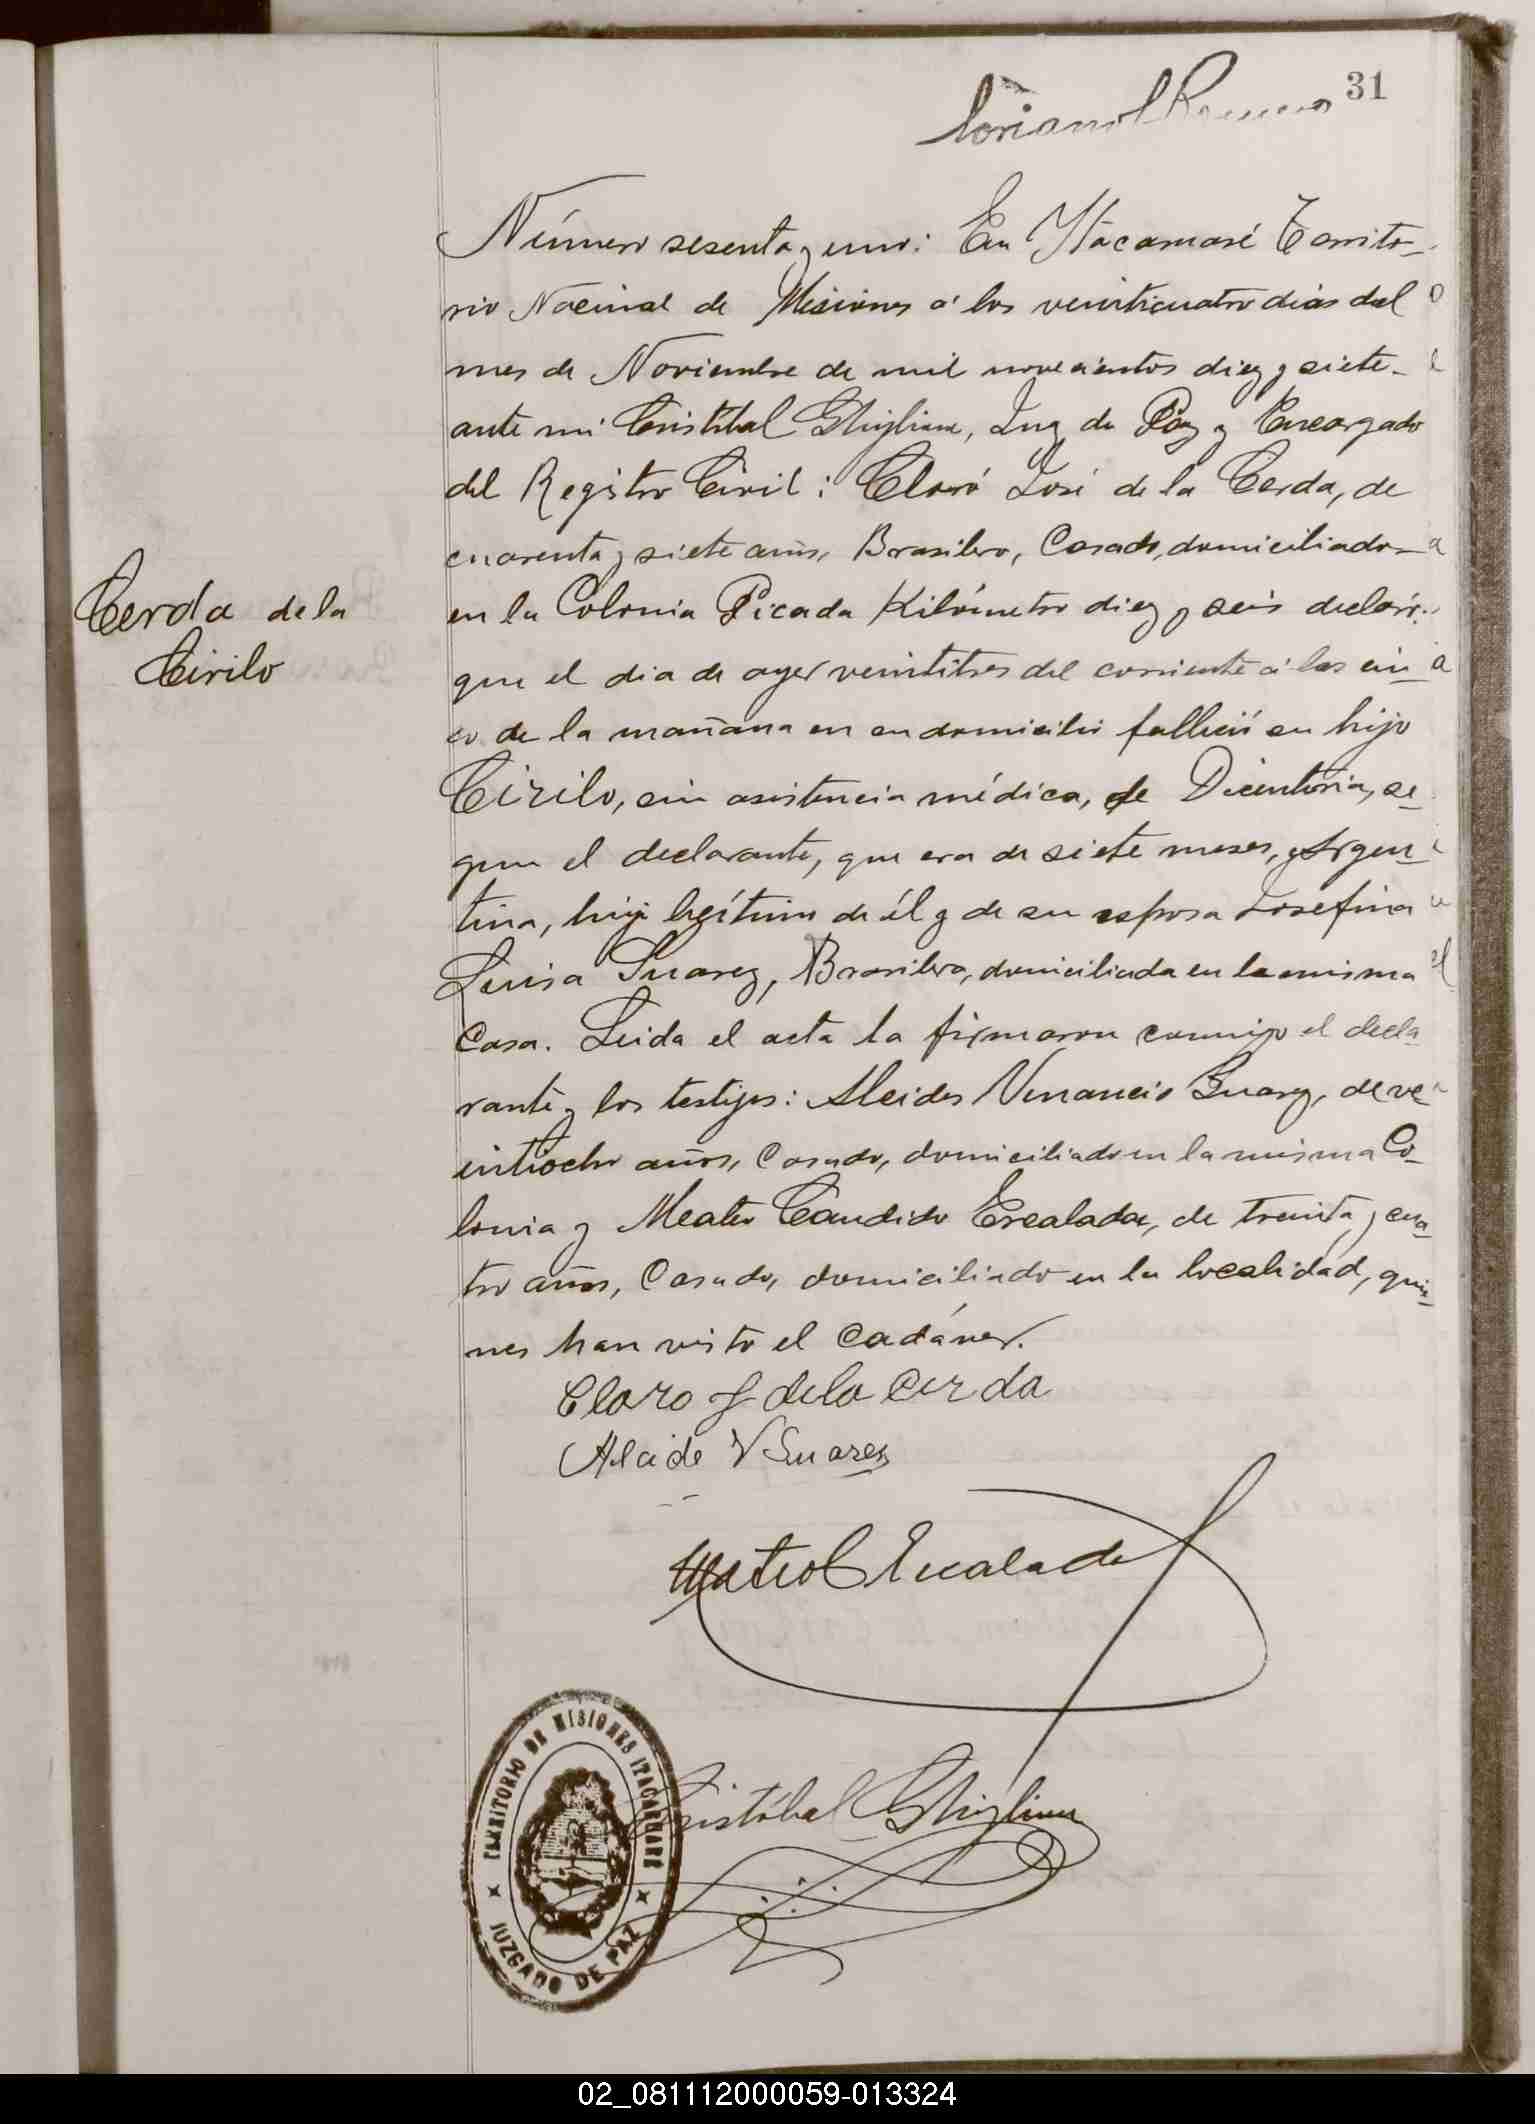 31
Número sesenta y uno: En Itacaruaré Territo-
rio Nacional de Misiones á los veinticuatro dias del
mes de Noviembre de mil novecientos diez y siete-
ante mi Cristóbal Ghigliane, Juez de Paz y Encargado
del Registro Civil: Claro José de la Cerda, de
cuarenta y siete años, Brasilero, Casado, domiciliado-
en la Colonia Picada Kilómetro diez y seis declaró:
que el dia de ayer veintitres del corriente á las cin-
co de la mañana en su domicilio falleció su hijo
Cirilo, sin asistencia médica, de Dicenteria, se-
gun el declarante, que era de siete meses, Argen-
tina, hijo legítimo de él y de su esposa Josefina
Luisa Suarez, Brasilera, domiciliada en la misma
Casa. Leida el acta la firmaron conmigo el decla-
rante y los testigos: Alcides Venancio Suarez, de ve-
intiocho años, Casado, domiciliado en la misma Co-
lonia y Mateo Candido Escalada, de treinta y cua-
tro años, Casado, domiciliado en la localidad, quie-
nes han visto el Cadáver.
Cerda de la
Cirilo
Claro J de la Cerda
Alcide V Suares
Mateo C Escalada
Cristóbal Ghigliane
TERRITORIO DE MISIONES ITACARUARE
JUZGADO DE PAZ
02_081112000059-013324